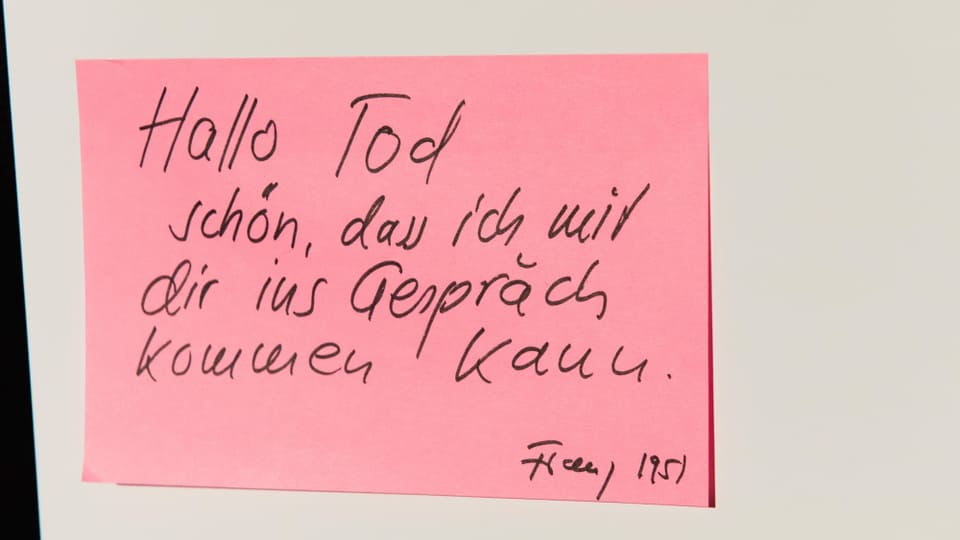 Hallo Tod
schön, dass ich mit
dir ins Gespräch
kommen kann.
Franz 1951